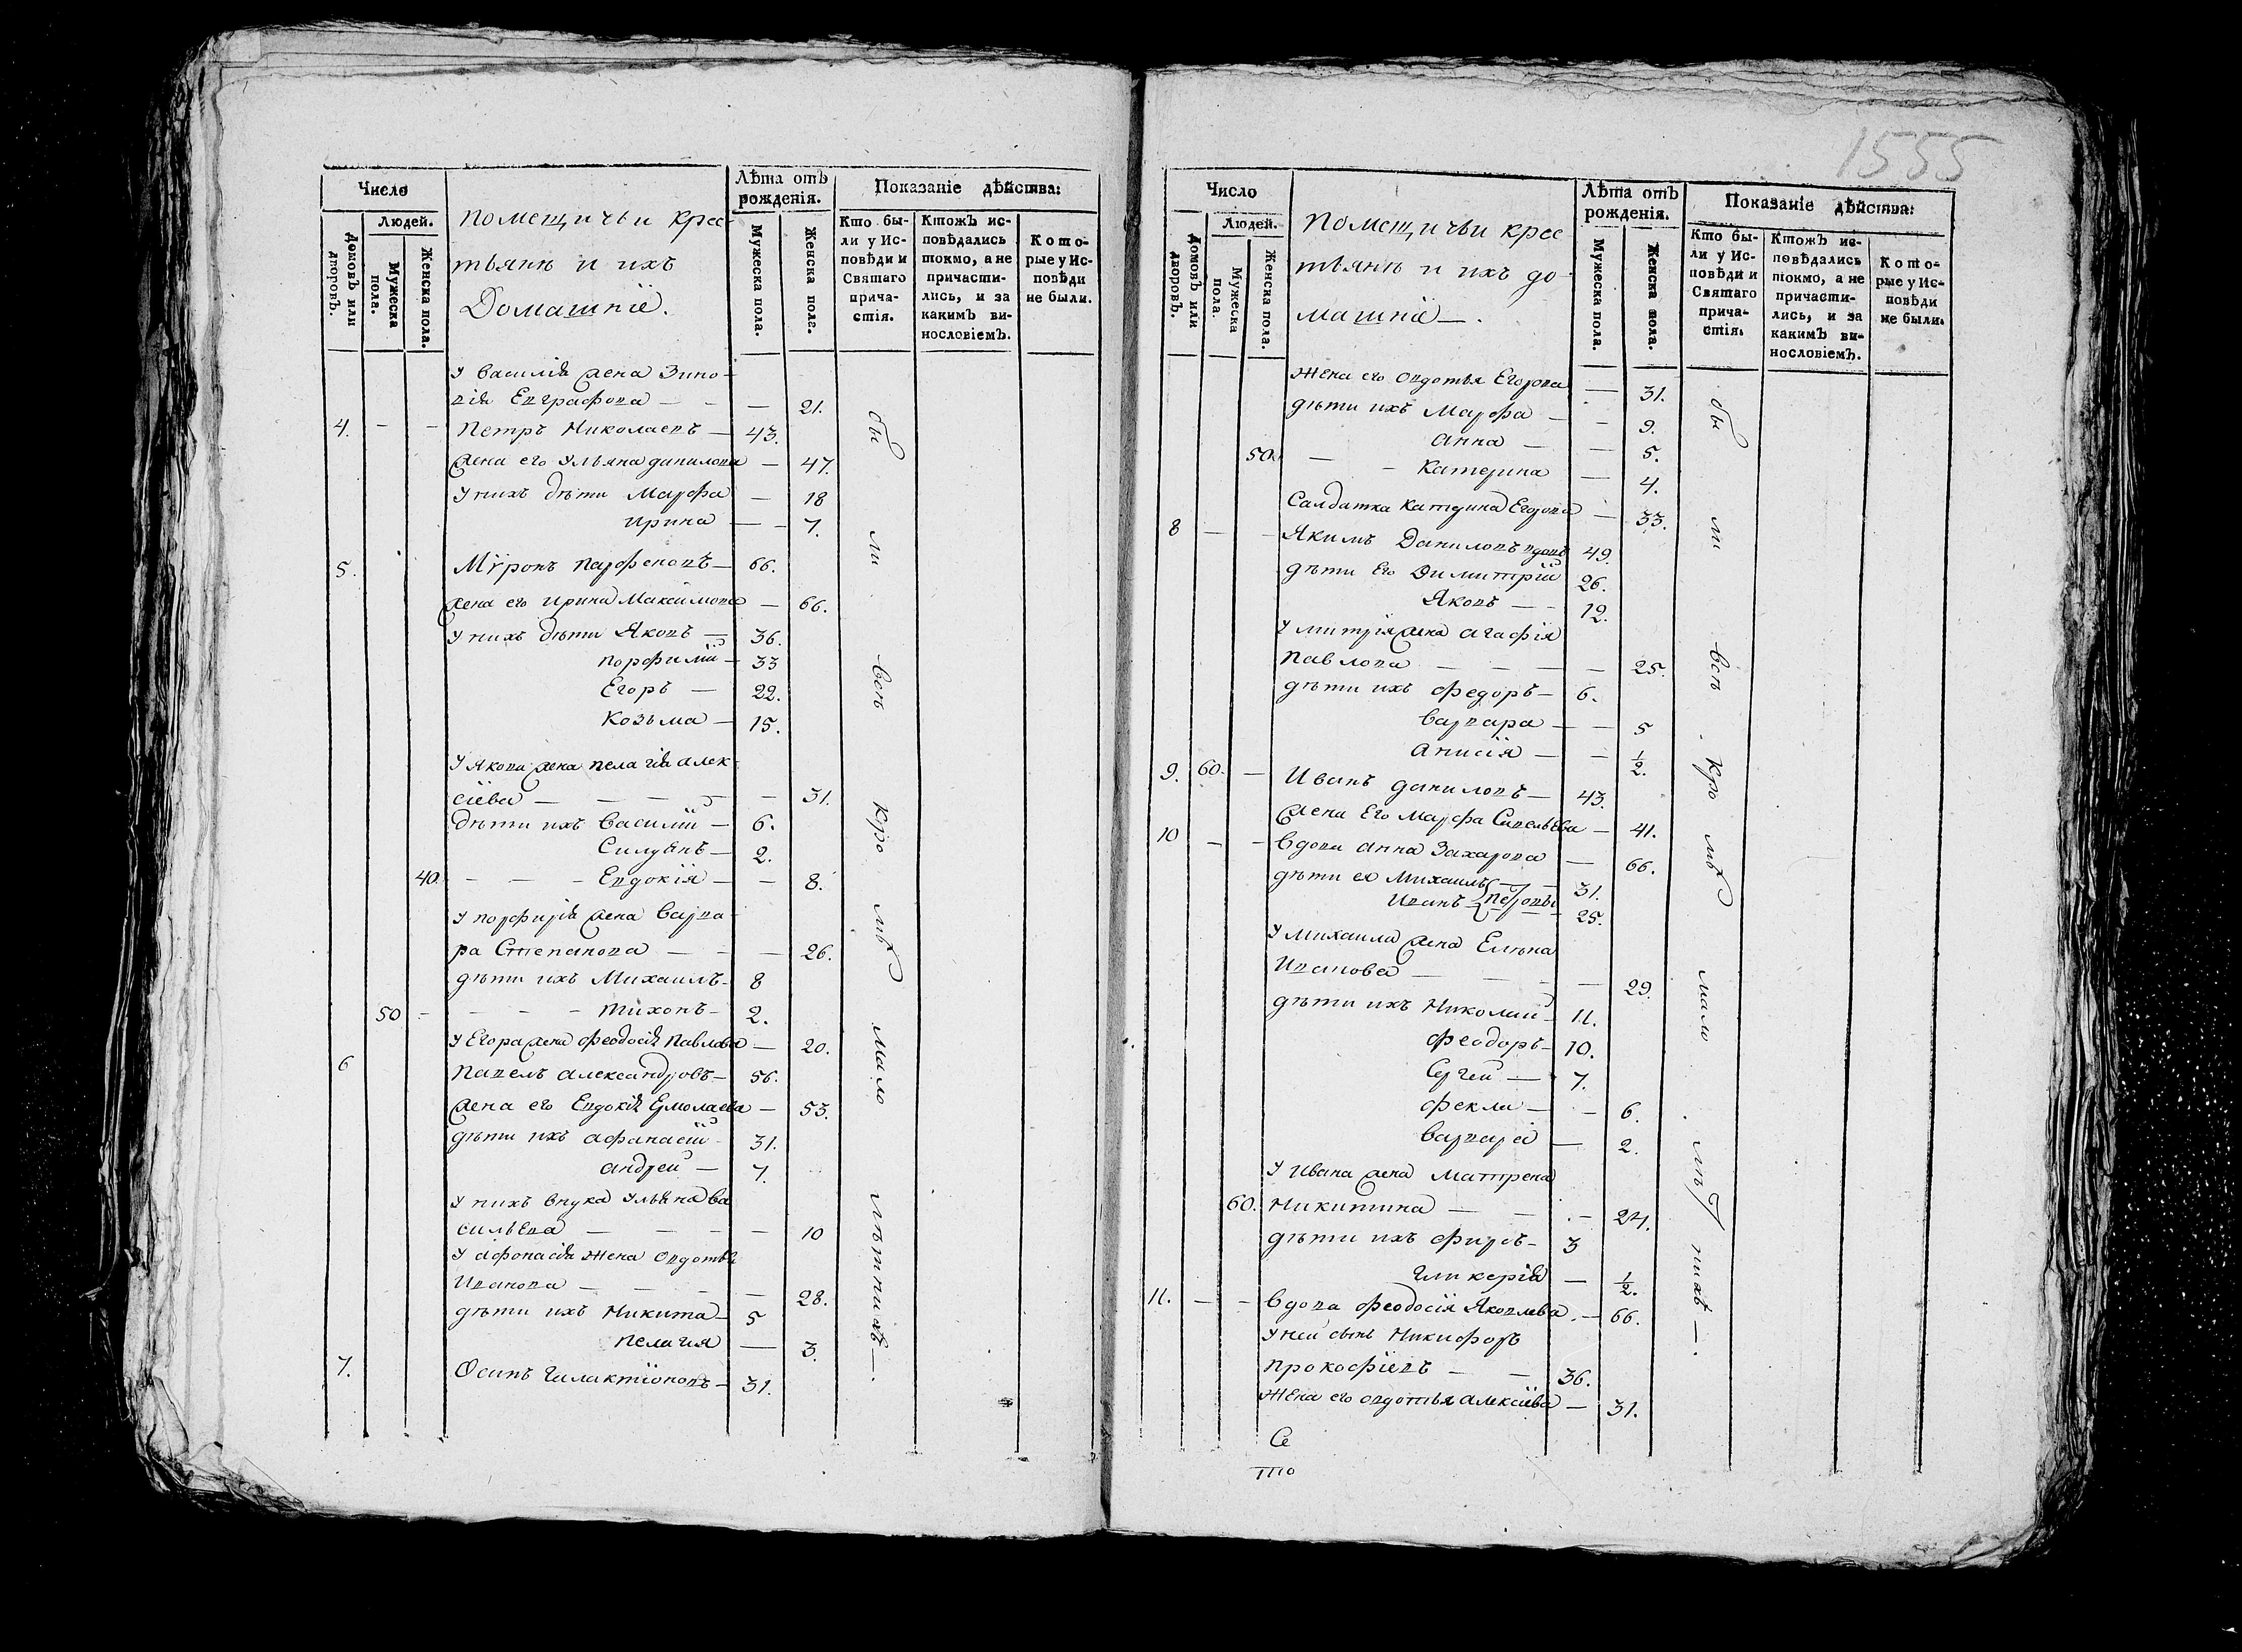 1555
Число
Людей.
Домовъ или дворовъ.
Мужеска пола.
Женска пола.
Помещичьи крес
тьянѣ и ихъ
Домашніе.
Лѣта отъ рожденія.
Мужеска пола.
Женска пола.
Показаніе дѣйства:
Кто бы-
ли у Ис-
повѣди и
Святаго
прича-
стія.
Ктожъ ис-
повѣдались
токмо, а не
причасти-
лись, и за
какимъ ви-
нословіемъ.
Кото-
рые у Ис-
повѣди
не были.
У Василія жена Зино-
вія Евграфова — — — 21.
4. — — Петръ Николаевъ — 43.
жена его Ульяна данилова — 47.
У нихъ дѣти Марфа — 18
Ирина — — 7.
5. Мѵронъ Парфеновъ — 66.
жена его Ирина Максимова — 66.
У нихъ дѣти Яковъ — 36.
Порфилий — 33
Егоръ — 22.
Козьма — 15.
У Якова жена Пелагія Алек-
сіева — — — — — 31.
дѣти ихъ Василій — 6.
Силуянъ — 2.
40. — — — Евдокія — — 8.
У порфирія жена Варва-
ра Степанова — — — 26.
дѣти ихъ Михаилъ — 8
50 — — — — Тихонъ — 2.
У Егора жена Феодосія Павлова — 20.
6 Павелъ Александровъ — 56.
жена его Евдокія Ермолаева — 53.
дѣти ихъ Афанасій — 31.
Андрей — 7.
У нихъ внука Ульяна Ва
сильева — — — — 10
У Афонасія жена Овдотья
Иванова — — — — 28.
дѣти ихъ Никита — 5
Пелагия — 3.
7. Осипъ Галактіоновъ — 31.
бы ли всѣ кро мѣ мало лѣтнихъ —.
Число
Людей.
Домовъ или дворовъ.
Мужеска пола.
Женска пола.
Помещичьи крес
тьянѣ и ихъ до-
машніе —.
Лѣта отъ рожденія.
Мужеска пола.
Женска пола.
Показаніе дѣйства:
Кто бы-
ли у Ис-
повѣди и
Святаго
прича-
стія.
Ктожъ ис-
повѣдались
токмо, а не
причасти-
лись, и за
какимъ ви-
нословіемъ.
Кото-
рые у Ис-
повѣди
не были.
Жена его Овдотья Егорова — 31.
дѣти ихъ Марфа — — 9.
Анна — — 5.
50. — — Катерина — 4.
Салдатка Катерина Егорова — 33.
8 — — Якимъ Даниловъ вдовъ 49.
дѣти Его Димитрій 26.
Яковъ — — 12.
У митрія жена Агафія
Павлова — — — — 25.
дѣти ихъ Федоръ — 6.
Варвара — — 5
Анисія — — 1/2.
9. 60. — Иванъ даниловъ — 43.
жена Его Марфа Савельева — 41.
10 — — Вдова Анна Захарова — 66.
дѣти ея Михаилъ — — 31.
Иванъ Петровы 25.
У Михаила жена Елѣна
Иванова — — — — 29.
дѣти ихъ Николай — 11.
Феодоръ — 10.
Сергей — 7.
Фекла — — 6.
Варвара — 2.
У Ивана жена Матрена
60. Никитина — — — 24.
дѣти ихъ Фирсъ — 3
Гликерія — 1/2.
11. — — Вдова Феодосія Яковлева. — 66.
У ней сынъ Никифоръ
Прокофіевъ — — 36.
Жена его Овдотья Алексіева — 31.
бы ли всѣ кро мѣ мало лѣтнихъ —.
Се